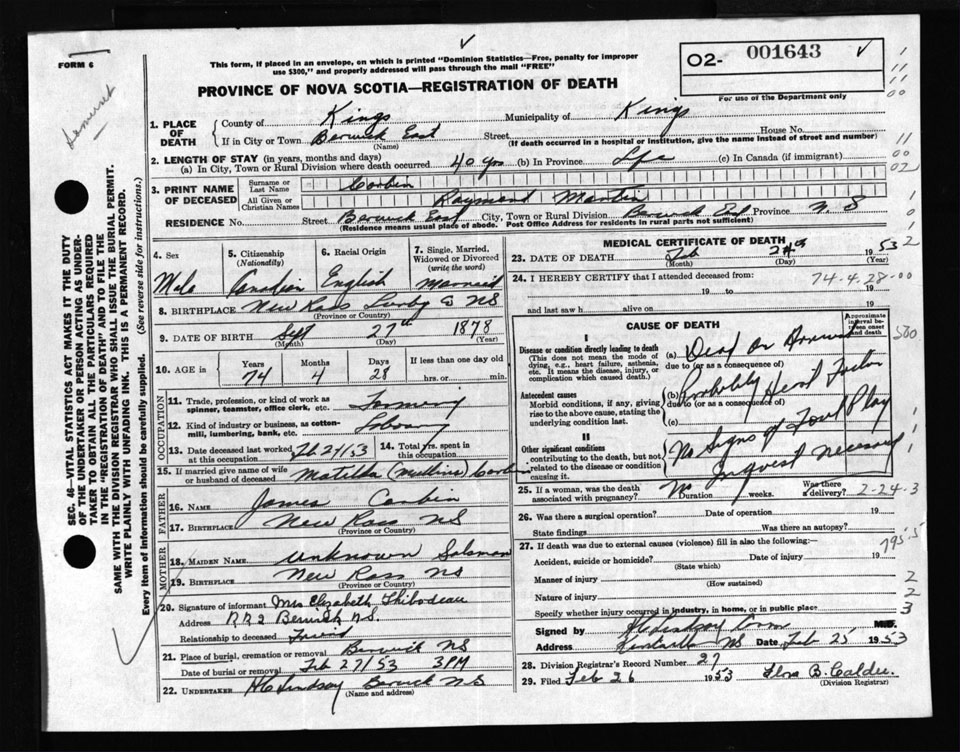 FORM 6
This form, if placed in an envelope, on which is printed "Dominion Statistics—Free, penalty for improper
use $300," and properly addressed will pass through the mail "FREE"
O2- 001643
For use of the Department only
PROVINCE OF NOVA SCOTIA—REGISTRATION OF DEATH
1. PLACE OF DEATH
County of Kings Municipality of Kings
If in City or Town Berwick East Street House No.
(Name) (If death occurred in a hospital or institution, give the name instead of street and number)
2. LENGTH OF STAY (in years, months and days)
(a) In City, Town or Rural Division where death occurred 40 yrs (b) In Province Life (c) In Canada (if immigrant)
3. PRINT NAME OF DECEASED
Surname or Last Name Corbin
All Given or Christian Names Raymond Martin
RESIDENCE No. Street Berwick East City, Town or Rural Division Berwick East Province N.S
(Residence means usual place of abode. Post Office Address for residents in rural parts not sufficient)
4. Sex
Male
5. Citizenship
(Nationality)
Canadian
6. Racial Origin
English
7. Single, Married, Widowed or Divorced
(write the word)
Married
8. BIRTHPLACE New Ross Lunbg Co NS
(Province or Country)
9. DATE OF BIRTH Sept 27th 1878
(Month) (Day) (Year)
10. AGE in
Years 74
Months 4
Days 28
If less than one day old
hrs. or min.
OCCUPATION
11. Trade, profession, or kind of work as
spinner, teamster, office clerk, etc. Farming
12. Kind of industry or business, as cotton-
mill, lumbering, bank, etc.
13. Date deceased last worked at this occupation Feb 24/53
14. Total yrs. spent in this occupation
15. If married give name of wife
or husband of deceased Matilda (Mullins) Corbin
FATHER
16. NAME James Corbin
17. BIRTHPLACE New Ross NS
(Province or Country)
MOTHER
18. MAIDEN NAME Unknown Salsman
19. BIRTHPLACE New Ross NS
(Province or Country)
20. Signature of informant Mrs Elizabeth Thibodeau
Address RR2 Berwick NS.
Relationship to deceased Friend
21. Place of burial, cremation or removal Berwick NS
Date of burial or removal Feb 27/53 3 PM
22. UNDERTAKER H C Lindsay Berwick N S
(Name and address)
MEDICAL CERTIFICATE OF DEATH
23. DATE OF DEATH Feb 24th 1953
(Month) (Day) (Year)
24. I HEREBY CERTIFY that I attended deceased from: 74-4-28-00
19 to 19
and last saw h alive on 19
CAUSE OF DEATH
Approximate interval between onset and death
I
Disease or condition directly leading to death
(This does not mean the mode of dying, e.g., heart failure, asthenia, etc. It means the disease, injury, or complication which caused death.)
(a) Dead on Arrival
due to (or as a consequence of)
Antecedent causes
Morbid conditions, if any, giving rise to the above cause, stating the underlying condition last.
(b) Probably Heart Failure
due to (or as a consequence of)
(c)
II
Other significant conditions
contributing to the death, but not related to the disease or condition causing it.
No Signs of Foul Play
Inquest necessary
25. If a woman, was the death associated with pregnancy? No Duration weeks. Was there a delivery? 2-24-3
26. Was there a surgical operation? Date of operation 19
State findings Was there an autopsy?
27. If death was due to external causes (violence) fill in also the following:— 795.5
Accident, suicide or homicide? Date of injury 19
(State which)
Manner of injury
(How sustained)
Nature of injury
Specify whether injury occurred in industry, in home, or in public place
Signed by M.D.
Address Kentville NS Date Feb 25 1953
28. Division Registrar's Record Number 27
29. Filed Feb 26 1953 B. Calder
(Division Registrar)
SEC. 46—VITAL STATISTICS ACT MAKES IT THE DUTY
OF THE UNDERTAKER OR PERSON ACTING AS UNDER-
TAKER TO OBTAIN ALL THE PARTICULARS REQUIRED
IN THE "REGISTRATION OF DEATH" AND TO FILE THE
SAME WITH THE DIVISION REGISTRAR WHO SHALL ISSUE THE BURIAL PERMIT.
WRITE PLAINLY WITH UNFADING INK. THIS IS A PERMANENT RECORD.
Every item of information should be carefully supplied. (See reverse side for instructions.)